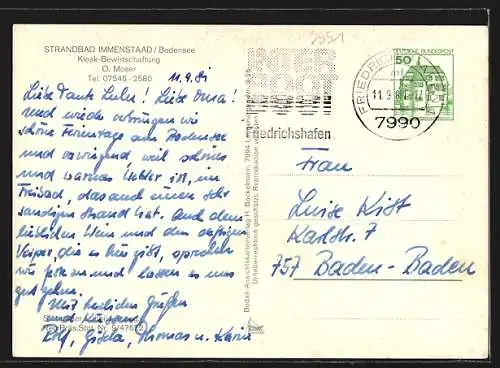 STRANDBAD IMMENSTAAD / Bodensee
Kiosk-Bewirtschaftung
O. Moser
Tel. 07545-2580
11.9.81
Liebe Tante Lulu! Liebe Oma!
Und wieder verbringen wir
schöne Ferientage am Bodensee
und vorwiegend, weil schönes
und warmes Wetter ist, im
Freibad, das auch einen sehr
sandigen Strand hat. Auch dem
köstlichen Wein und dem deftigen
Vesper, die es hier gibt, sprechen
wir gerne und lassen es uns
gut gehen.
Mit herzlichen Grüßen
und Küssen
Rolf, Gisela, Thomas u. Karin
Nr. 9/47672
Bodan Ansichtskartenverlag H. Bockelmann, 7994 Langenargen
Urheberrechtlich geschützt. Reproduktion verboten
3951
INTER
BOOT
Friedrichshafen
FRIEDRICHSHAFEN
11.9.81
7990
50
DEUTSCHE BUNDESPOST
Frau
Luise Kist
Karlstr. 7
757 Baden-Baden